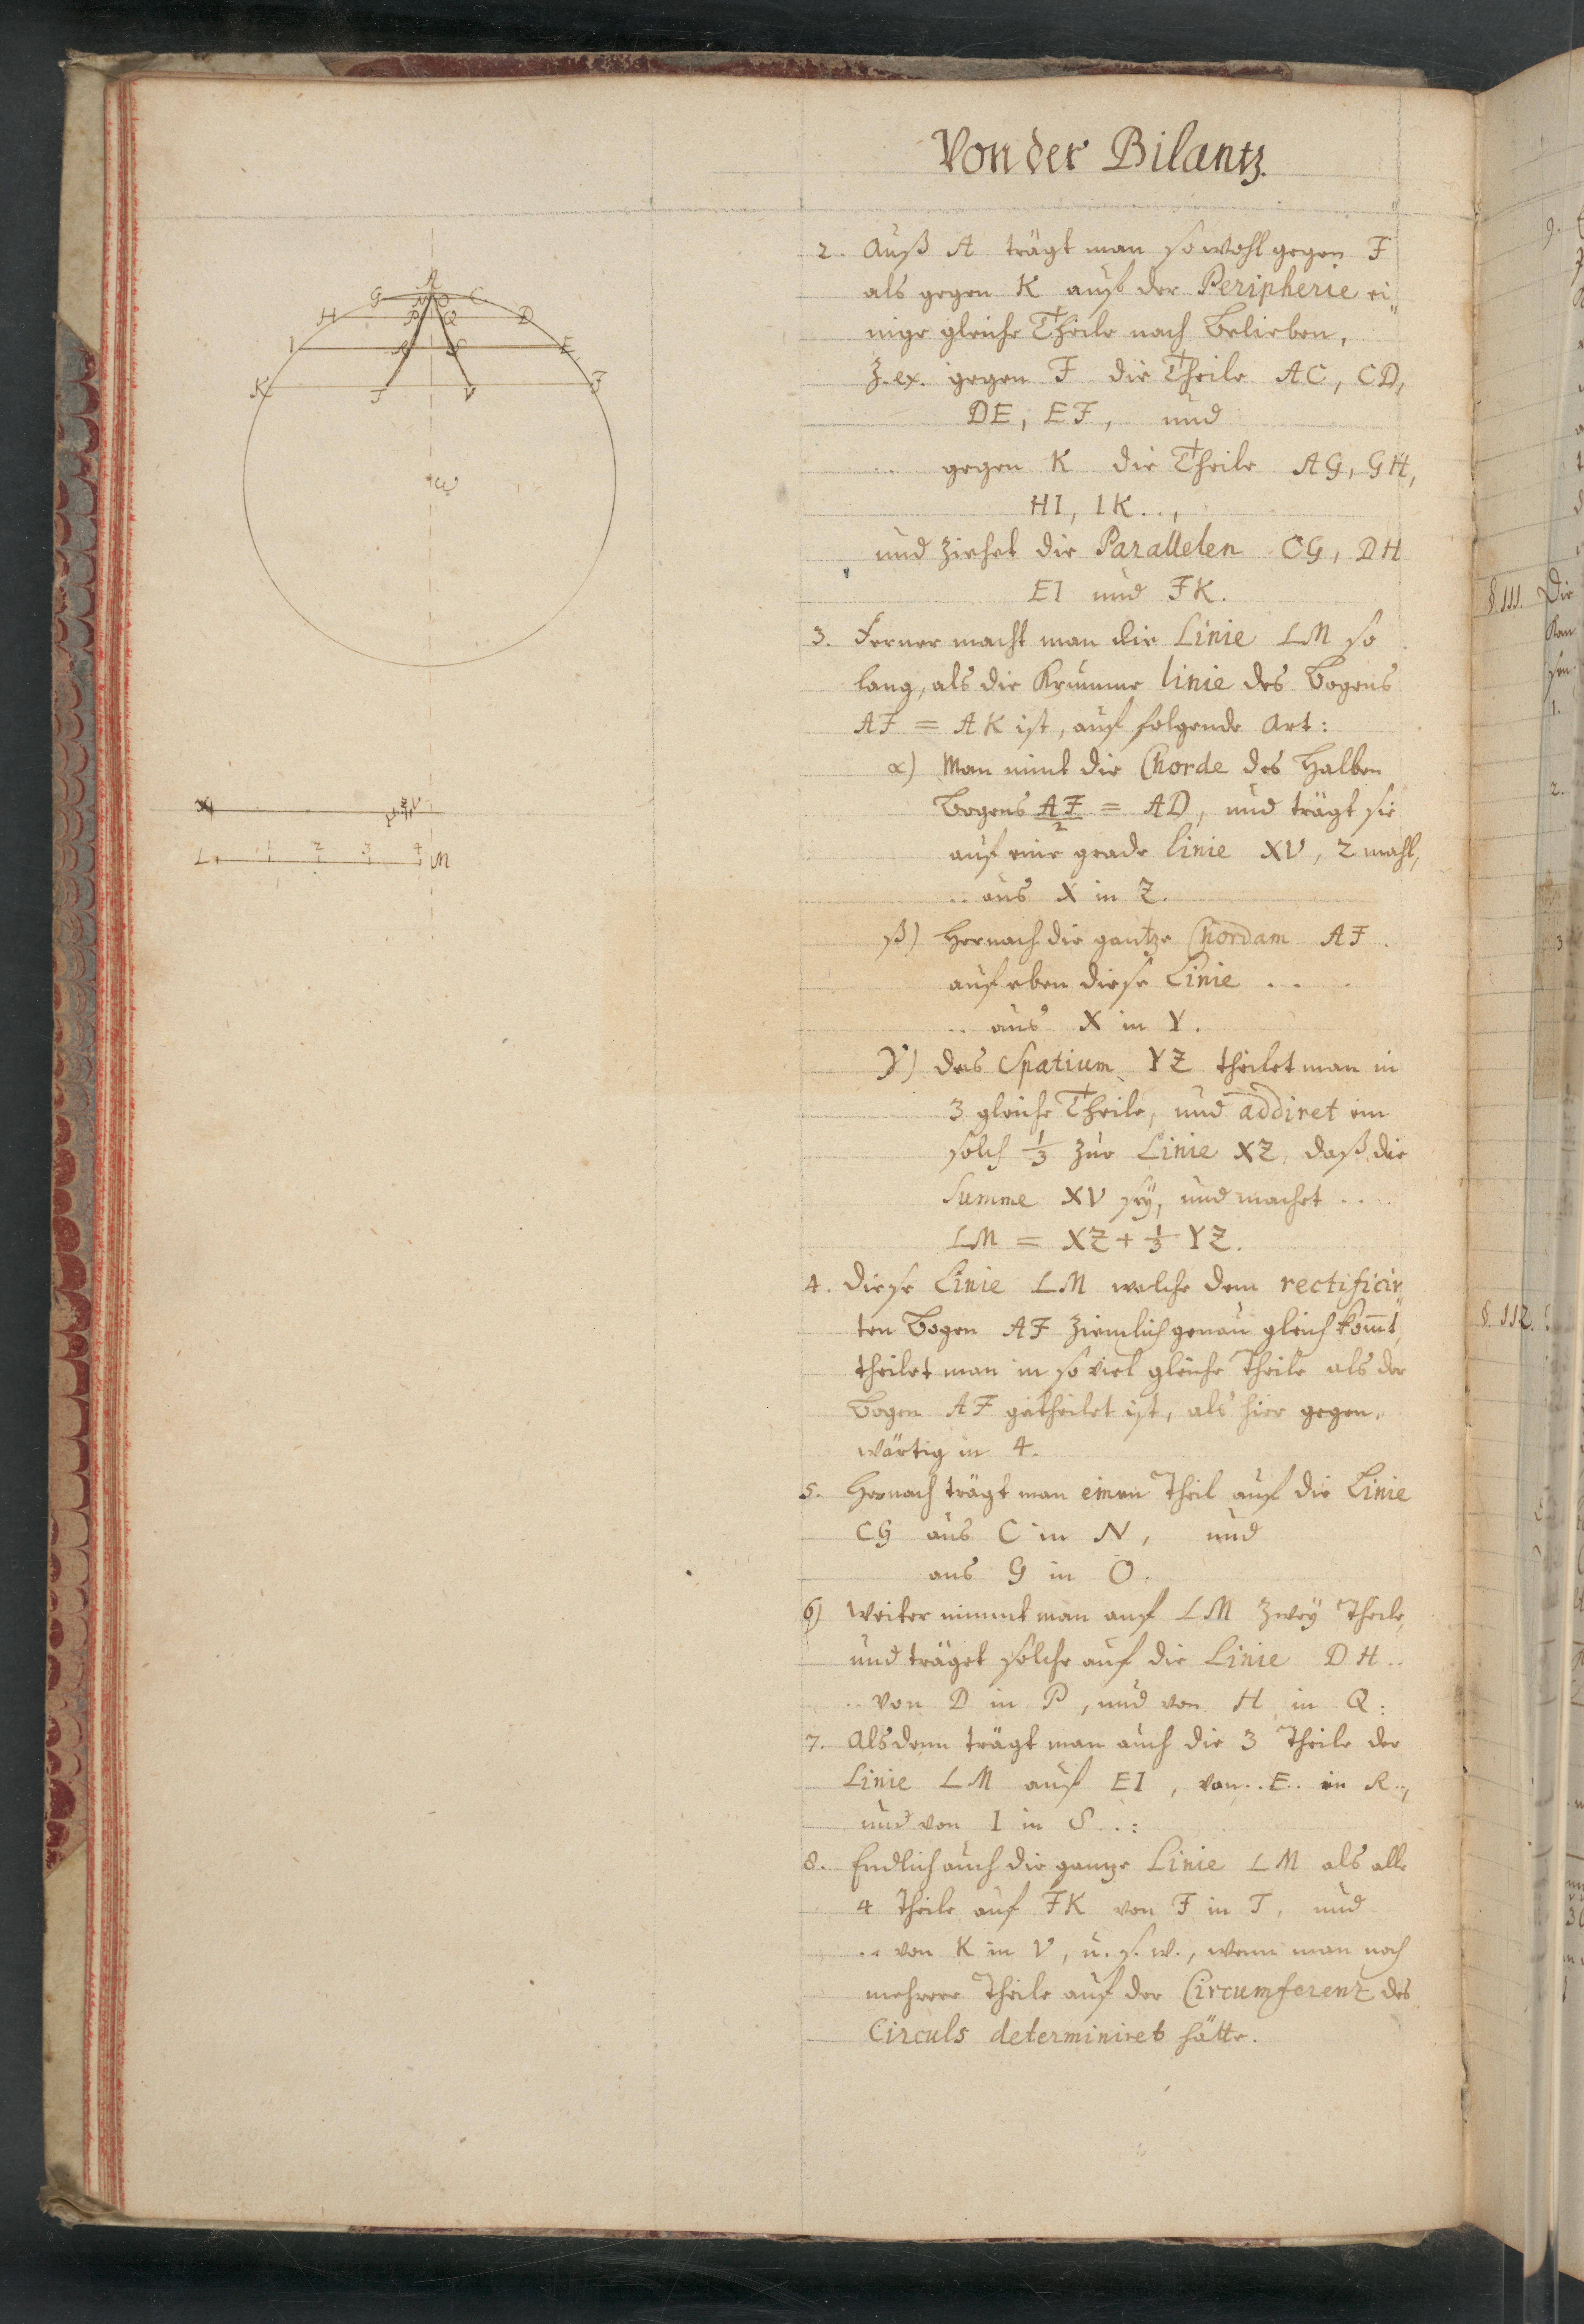 Von der Bilantz.
2. Auß A trägt man so wohl gegen F
als gegen K auf der Peripherie ei„
nige gleiche Theile nach Belieben,
z. ex. gegen F die Theile AC, CD,
DE, EF, und
.. gegen K die Theile AG, GH,
HI, IK..,
und ziehet die Parallelen CG, DH
EI und FK.
3. Ferner macht man die Linie LM so
lang, als die Krumme linie des Bogens
AF = AK ist, auf folgende Art:
α) Man nimt die Chorde des Halben
Bogens AF/2 = AD, und trägt sie
auf eine grade Linie XV, 2 mahl,
.. aus X in Z.
β) Hernach die gantze Chordam AF
auf eben diese Linie ...
.. aus X in Y.
γ) das Spatium YZ theilet man in
3 gleiche Theile, und addiret ein
solch 1/3 zur Linie XZ, daß die
Summe XV seÿ, und machet ..
LM = XZ + 1/3 YZ.
4. Diese Linie LM welche dem rectificir„
ten Bogen AF ziemlich genau gleich kom̄t,
theilet man in so viel gleiche Theile als der
Bogen AF getheilet ist, als hier gegen„
wärtig in 4.
5. Hernach trägt man einen Theil auf die Linie
CG aus C in N, und
aus G in O.
6) Weiter nimmt man auf LM zweÿ Theile,
und träget solche auf die Linie DH..
.. von D in P, und von H in Q:
7. Alsdenn trägt man auch die 3 Theile der
Linie LM auf EI, von.. E.. in R..,
und von I in S..:
8. Endlich auch die gantze Linie LM als alle
4 Theile auf FK von F in T, und
.. von K in V, u. s. w., wenn man noch
mehrere Theile auf der Circumferenz des
Circuls determiniret hätte.
A
G N O C
H P Q D
I R S E
K T V F
ω
X Y Z V
L 1 2 3 4 M
§. 111. Die
1.
2.
3
§. 112.